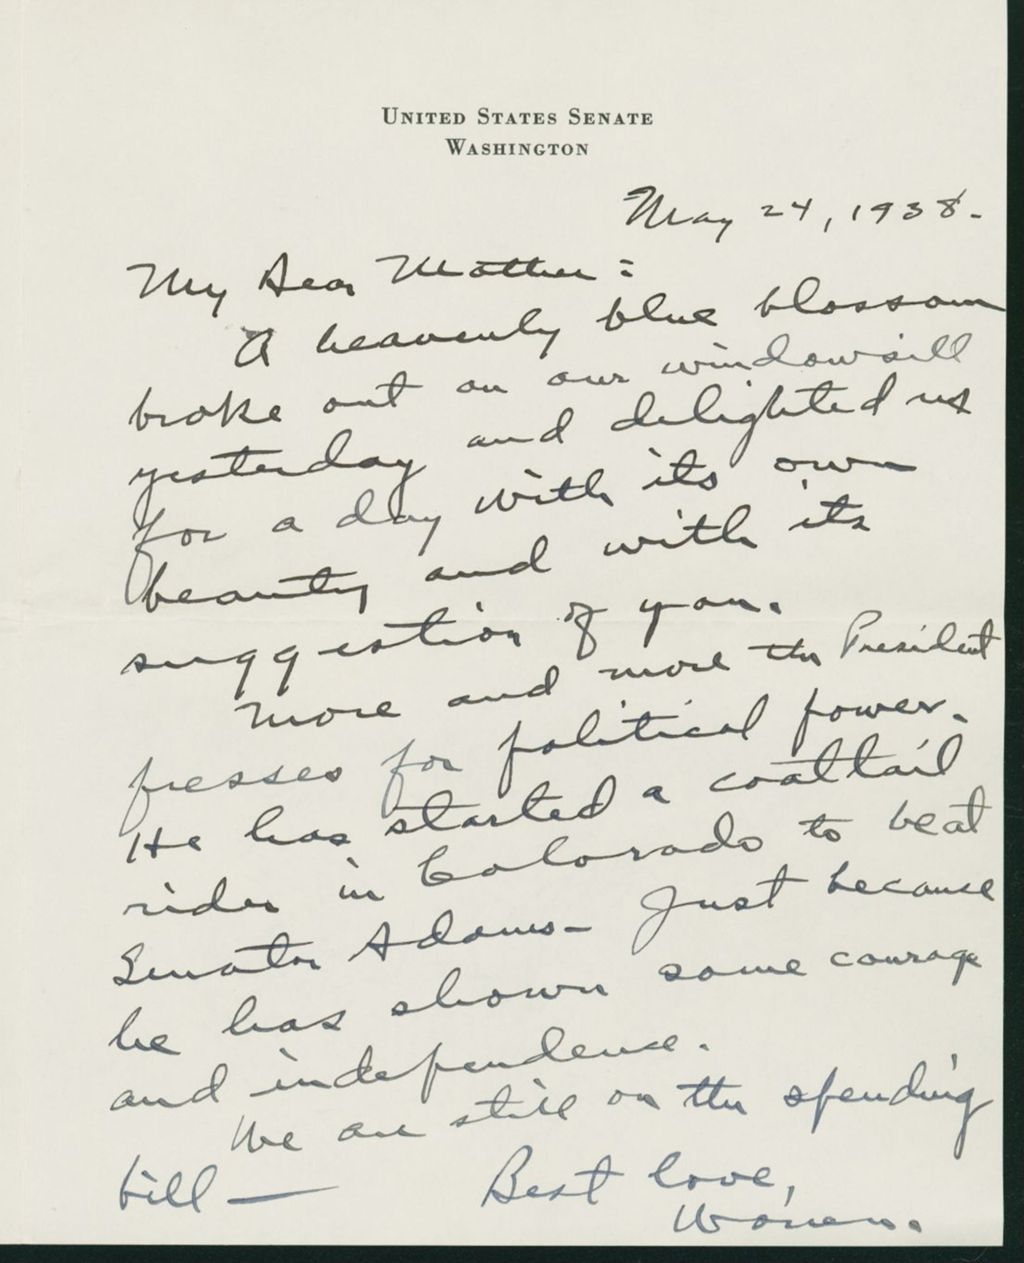 UNITED STATES SENATE
WASHINGTON
May 24, 1938.
My Dear Mother:
A heavenly blue blossom
broke out on our windowsill
yesterday and delighted us
for a day with its own
beauty and with its
suggestion of you.
More and more the President
presses for political power.
He has started a coattail
rider in Colorado to beat
Senator Adams - Just because
he has shown some courage
and independence.
We are still on the spending
bill — Best love,
Warren.